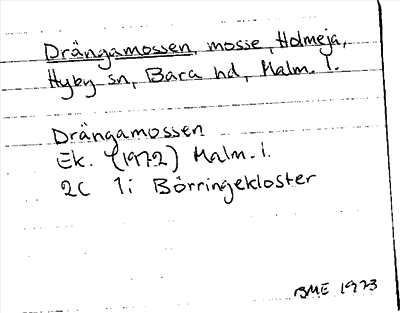 Drängamossen, mosse, Holmeja,
Hyby sn, Bara hd, Malm. l.
Drängamossen
Ek. (1972) Malm. l.
2C 1i Börringekloster
BME 1973